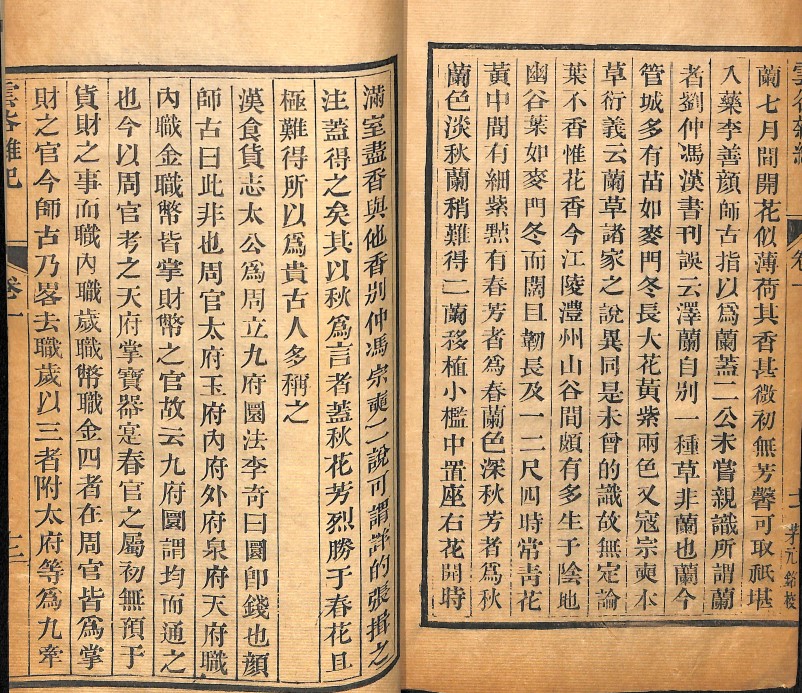 雲谷雜紀
卷一
十二
茅元銘校
蘭七月間開花似薄荷其香甚微初無芳馨可取祇堪
入藥李善顔師古指以爲蘭蓋二公未嘗親識所謂蘭
者劉仲馮漢書刊誤云澤蘭自別一種草非蘭也蘭今
管城多有苗如麥門冬長大花黃紫兩色又寇宗奭本
草衍義云蘭草諸家之說異同是未曾的識故無定論
葉不香惟花香今江陵澧州山谷間頗有多生于陰地
幽谷葉如麥門冬而闊且韌長及一二尺四時常青花
黃中間有細紫㸃有春芳者爲春蘭色深秋芳者爲秋
蘭色淡秋蘭稍難得二蘭移植小檻中置座右花開時
滿室盡香與他香別仲馮宗奭二說可謂詳的張揖之
注蓋得之矣其以秋爲言者蓋秋花芳烈勝于春花且
極難得所以爲貴古人多稱之
漢食貨志太公爲周立九府圜法李奇曰圜卽錢也顔
師古曰此非也周官太府玉府內府外府泉府天府職
內職金職幣皆掌財幣之官故云九府圜謂均而通之
也今以周官考之天府掌寶器寔春官之屬初無預于
貨財之事而職內職歲職幣職金四者在周官皆爲掌
財之官今師古乃畧去職歲以三者附太府等爲九牽
雲谷雜記
卷一
十三